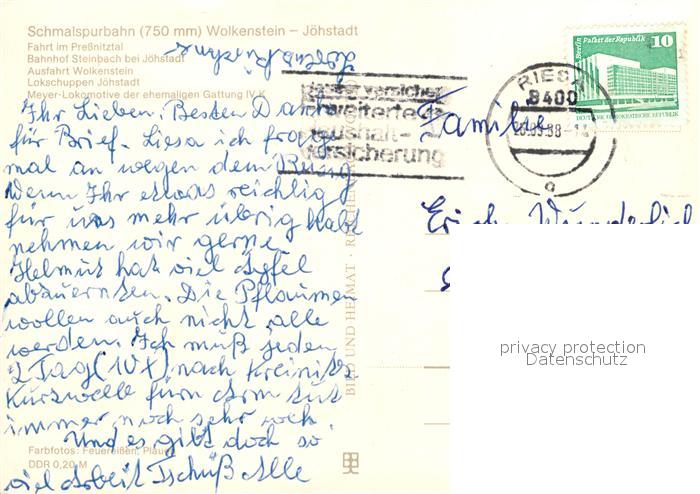 Schmalspurbahn (750 mm) Wolkenstein – Jöhstadt
Fahrt im Preßnitztal
Bahnhof Steinbach bei Jöhstadt
Ausfahrt Wolkenstein
Lokschuppen Jöhstadt
Meyer-Lokomotive der ehemaligen Gattung IV K
Ihr Lieben. Besten Dank
für Brief. Liesa ich frage
mal an wegen dem
Wenn Ihr etwas reichlig
für uns mehr übrig habt
nehmen wir gerne.
Helmut hat viel Äpfel
abzuernten. Die Pflaumen
wollen auch nicht alle
werden. Ich muß jeden
2 Tag (10X) nach Kreinitz
Kurzwelle fürn Arm tut
immer noch sehr weh.
Und es gibt doch so
viel Arbeit Tschüß Alle
Farbfotos: Feuereißen, Plauen
DDR 0,20 M
BILD UND HEIMAT · REICHENBACH
erweiterte
Haushalt-
versicherung
RIESA
8400
Berlin Palast der Republik 10
DEUTSCHE DEMOKRATISCHE REPUBLIK
Familie
Erich Wunderlich
privacy protection
Datenschutz